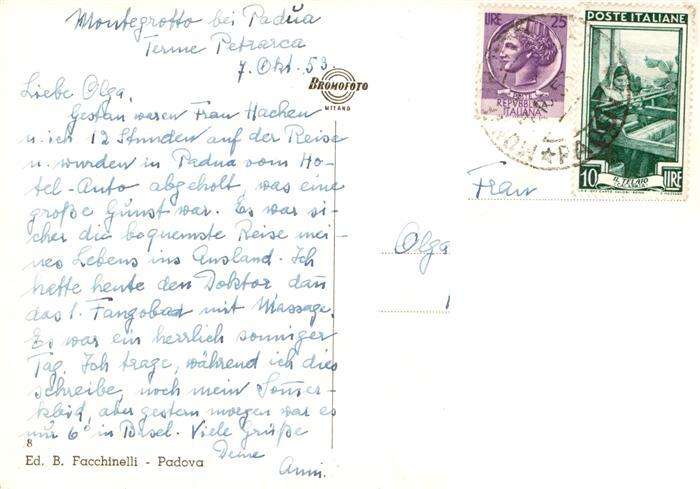 Montegrotto bei Padua
Terme Petrarca
7. Okt. 53
BROMOFOTO
MILANO
Liebe Olga,
Gestern waren Frau Hachen
u. ich 12 Stunden auf der Reise
u. wurden in Padua vom Ho-
tel-Auto abgeholt, was eine
große Gunst war. Es war si-
cher die bequemste Reise mei-
nes Lebens ins Ausland. Ich
hatte heute den Doktor dan
das 1. Fangobad mit Massage.
Es war ein herrlich sonniger
Tag. Ich trage, während ich dies
schreibe, noch mein Somer-
kleid, aber gestern morgen war es
nur 6° in Basel. Viele Grüße
Deine
Anni.
8
Ed. B. Facchinelli - Padova
LIRE 25
POSTE
REPUBBLICA
ITALIANA
POSTE ITALIANE
10 LIRE
IL TELAIO
Frau
Olga